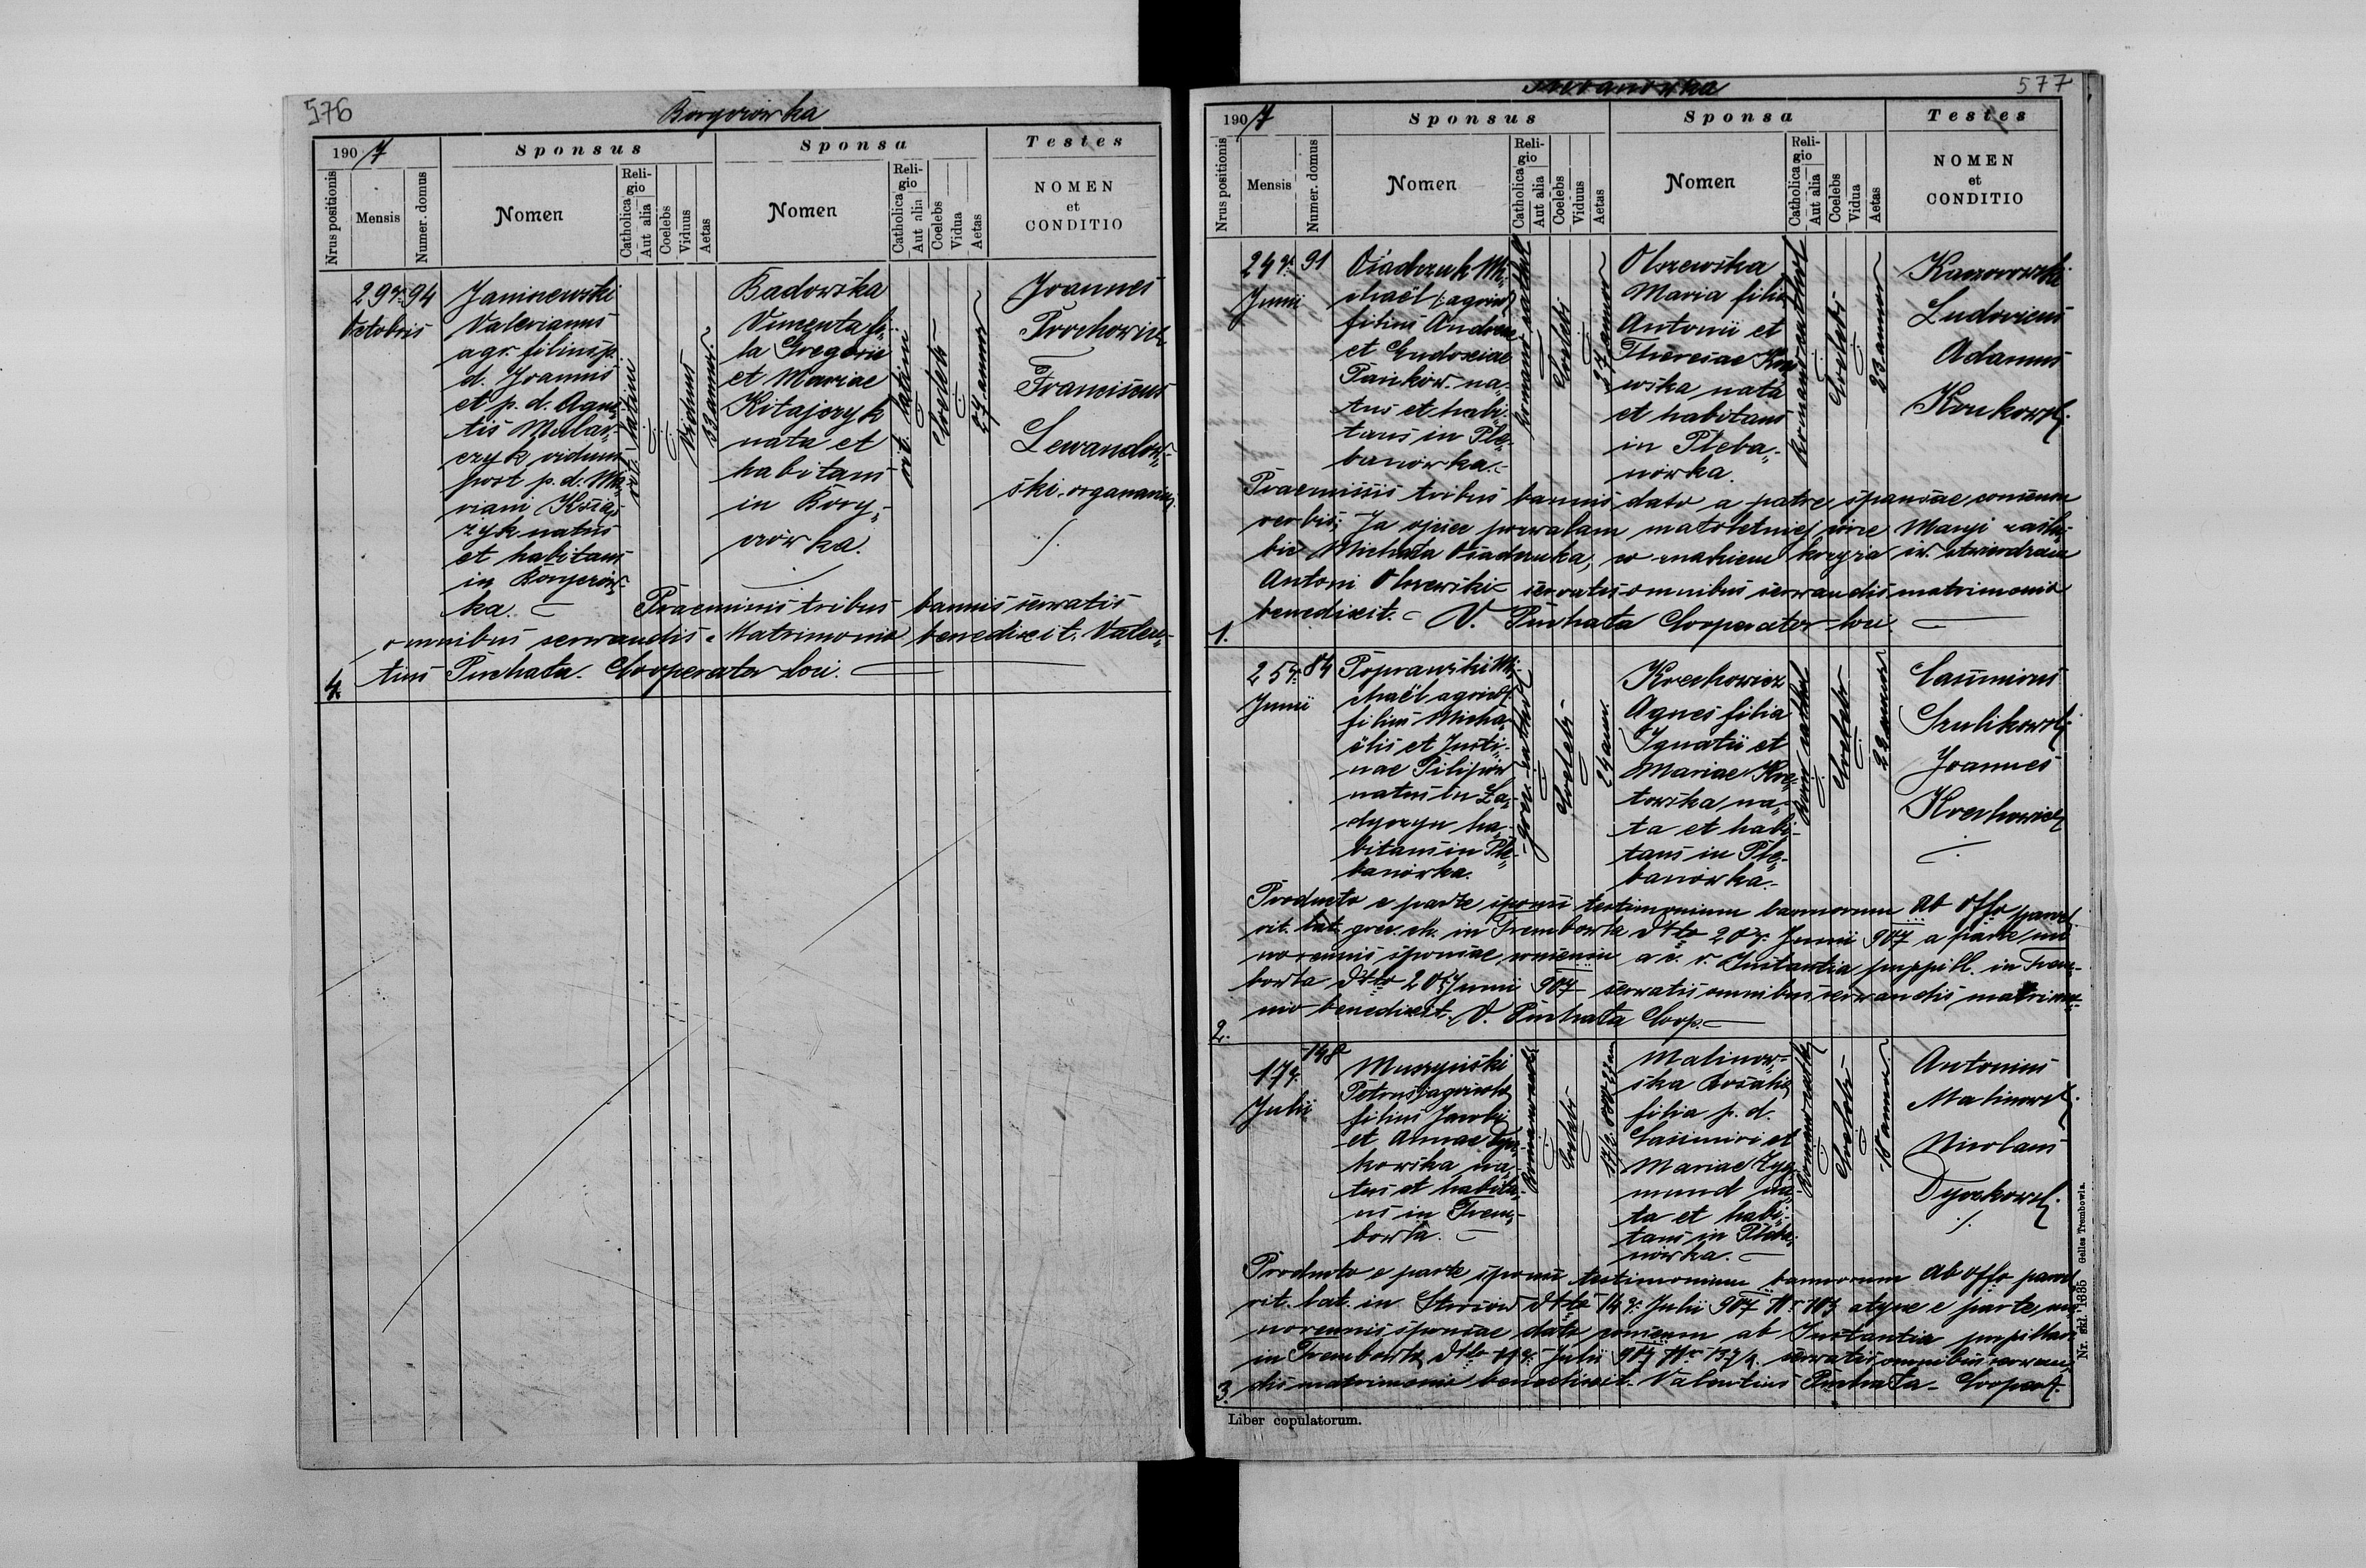 576
Boryczówka
1907
Sponsus
Sponsa
Testes
Nrus positionis
Mensis
Numer. domus
Nomen
Reli-
gio
Catholica
Aut alia
Coelebs
Viduus
Aetas
Nomen
Reli-
gio
Catholica
Aut alia
Coelebs
Vidua
Aetas
NOMEN
et
CONDITIO
29r. 94
Octobris
Janiszewski
Valerianus
agr. filius p.
d. Joannis
et p. d. Agne-
tis Mular-
czyk viduus
post p. d. Ma-
riam
natus
et habitans
in Boryczów-
ka.
rit. latini
Viduus
33 annor.
Badowska
fi-
la Gregorii
et Mariae
Kitajczyk
nata et
habitans
in Bory-
czówka.
rit. latini
Coelebs
27 annor
Joannes
Prochowicz
Franciscus
Lewandow-
ski organarius
Praemissis tribus bannis servatis
omnibus servandis Matrimonio benedixit. Valen-
tius Puchała Cooperator loci.
4.
577
Plebanówka
1907
Sponsus
Sponsa
Testes
Nrus positionis
Mensis
Numer. domus
Nomen
Reli-
gio
Catholica
Aut alia
Coelebs
Viduus
Aetas
Nomen
Reli-
gio
Catholica
Aut alia
Coelebs
Vidua
Aetas
NOMEN
et
CONDITIO
24r. 91
Junii
Osadczuk Mi-
chaël
filius Andreae
et Eudoxiae
Pańków na-
tus et habi-
tans in Ple-
banówka.
Romano cathol
Coelebs
27 annor
Olszewska
Maria filia
Antonii et
Theresiae
nata
et habitans
in Pleba-
nówka.
Romano cathol
Coelebs
23 annor
Kaczorowski
Ludovicus
Adamus
Krukowski
Praemissis tribus bannis dato a patre sponsae consensu
verbis: Ja ojciec pozwalam małoletniej córce Maryi zaślu-
bić Michała Osadczuka, co znakiem krzyża św. stwierdzam
Antoni Olszewski servatis omnibus servandis matrimonio
benedixit. V. Puchała Cooperator loci.
1.
25r. 84
Junii
Poprawski Mi-
chaël agricol
filius Micha-
ëlis et Justi-
nae Pilipów
natus in Ła-
dyczyn ha-
bitans in Ple-
banówka.
grec. cathol
Coelebs
24 ann.
Krechowicz
Agnes filia
Ignatii et
Mariae
na-
ta et habi-
tans in Ple-
banówka.
Rom cathol
Coelebs
22 annor
Casimirus
Szulikowski
Joannes
Krechowicz
Producto e parte sponsi testimonium bannorum ab Offo paroch
rit. gr. in Trembowla ddto 20r. Junii 907 a parte mi-
norennis sponsae consensu a c. r. Instantia puppill. in Trem-
bowla ddto 20 Junii 907 servatis omnibus servandis matrimo-
nio benedixit. V. Puchała Coop.
2.
17r. 148
Julii
Muszyński
Petrus agricola
filius Jacobi
et Annae
na-
tus et habita-
ns in Trem-
bowla.
Romano cath
Coelebs
Malinow-
ska Rosalia
filia p. d.
Casimiri et
Mariae Zyg-
mund na-
ta et habi-
tans in Pleba-
nówka.
Romano cath
Coelebs
18 annor.
Antonius
Malinowski
Nicolaus
Dyczkowski
Producto e parte sponsi testimonium bannorum ab Offo paroch
rit. lat. in ddto 14r. Julii 907 Nr 103 atque e parte mi-
norennis sponsae dato consensu ab Instantia puppillar
in Trembowla ddto Julii 907 servatis omnibus servan-
dis matrimonio benedixit. Valentius Puchała Cooperat.
3.
Liber copulatorum.
Nr. skl. 1335 Gelles Trembowla.